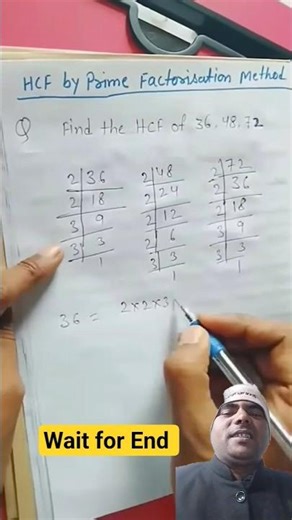 HCF by Prime Factorisation Method
Q Find the HCF of 36, 48, 72
2 36
2 18
3 9
3 3
1
2 48
2 24
2 12
2 6
3 3
1
2 72
2 36
2 18
3 9
3 3
1
36 = 2×2×3
Wait for End